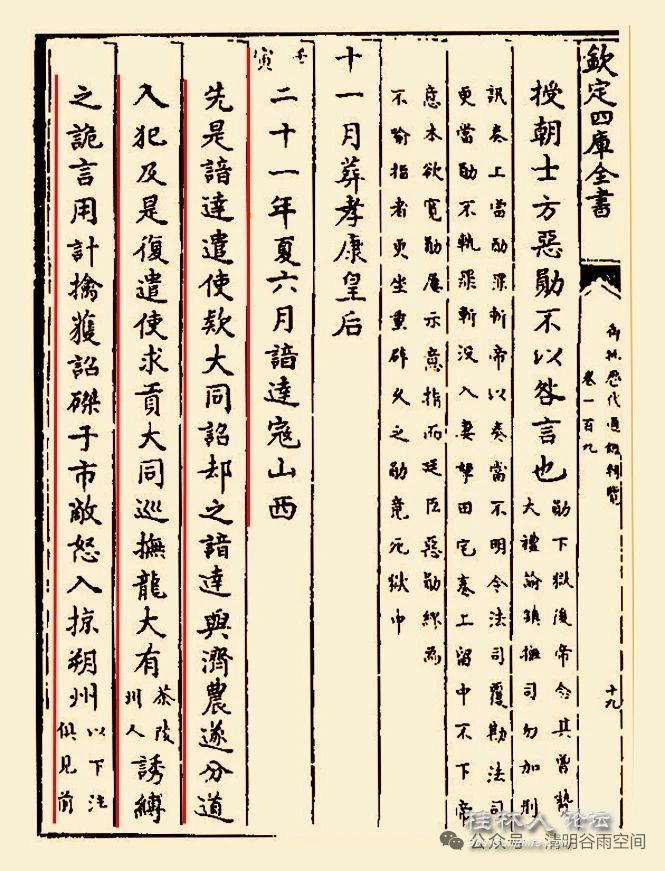 欽定四庫全書
御批歷代通鑑輯覽
卷一百九
十九
授朝士方惡勛不以咎言也
勛下獄後帝令其曾贊
大禮諭鎮撫司勿加刑
訊奏上當勛罪斬帝以奏當不明令法司覆勘法司
更當勛不軌罪斬沒入妻孥田宅奏上留中不下帝
意本欲寬勛屢示意指而廷臣惡勛繆爲
不喻指者更坐重辟久之勛竟死獄中
十一月葬孝康皇后
壬寅
二十一年夏六月諳達寇山西
先是諳達遣使欵大同詔却之諳達與濟農遂分道
入犯及是復遣使求貢大同巡撫龍大有茶陵州人誘縛
之詭言用計擒獲詔磔于市敵怒入掠朔州以下注俱見前
桂林人论坛
公众号 · 清明谷雨空间